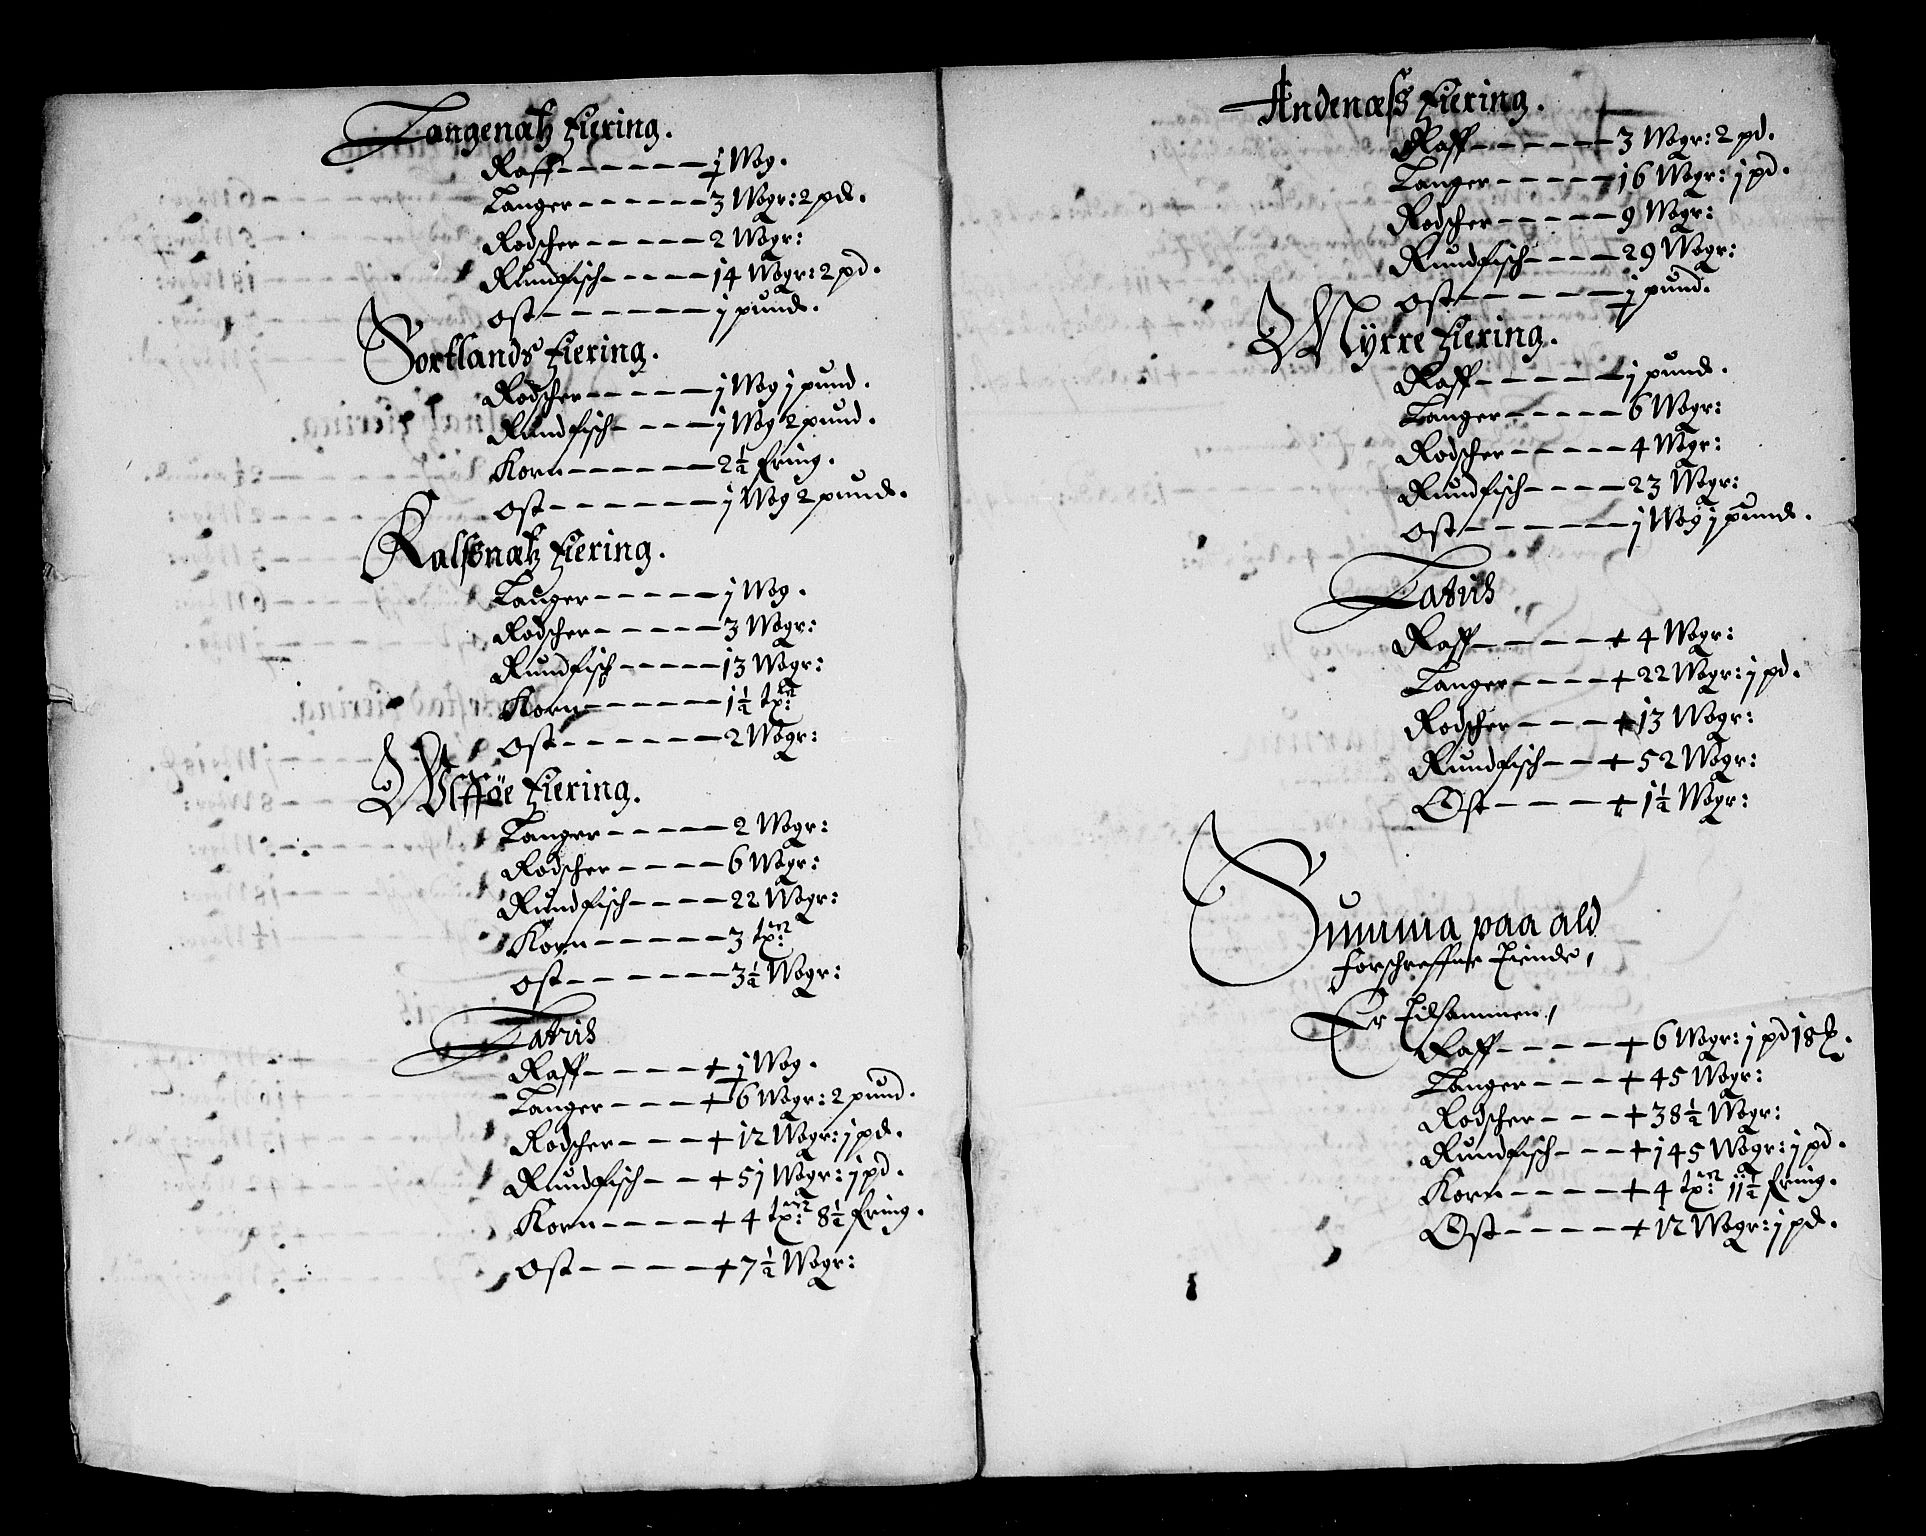 Langenæs Fiering.
Raff - - - - - - 1 Wog.
Langer - - - - - - 3 Wogr: 2 pd.
Rodscher - - - - - 2 Wogr:
Rundfisch - - - - - 14 Wogr: 2 pd.
Ost - - - - - - - j pund.
Sortlands Fiering.
Rodscher - - - - - j Wog j pund.
Rundfisch - - - - j Wog 2 pund.
Korn - - - - - - 2½ Ering.
Ost - - - - - - - j Wog 2 pund.
Kalssnæs Fiering.
Langer - - - - - - j Wog.
Rodscher - - - - - - 3 Wogr:
Rundfisch - - - - - 13 Wogr:
Korn - - - - - - 1½ tr:
Ost - - - - - - - 2 Wogr:
Ulfföe Fiering.
Langer - - - - - - 2 Wogr:
Rodscher - - - - - 6 Wogr:
Rundfisch - - - - 22 Wogr:
Korn - - - - - - 3 tr:
Ost - - - - - - - 3½ Wogr:
Lateris
Raff - - - - - + j Wog.
Langer - - - - + 6 Wogr: 2 pund.
Rodscher - - - + 12 Wogr: j pd.
Rundfisch - - + 5j Wogr: j pd.
Korn - - - - + 4 tr: 8½ Ering.
Ost - - - - - + 7½ Wogr:
Andenæss Fiering.
Raff - - - - - - 3 Wogr: 2 pd.
Langer - - - - - 16 Wogr: j pd.
Rodscher - - - - - 9 Wogr:
Rundfisch - - - - 29 Wogr:
Ost - - - - - - j pund.
Myrre Fiering.
Raff - - - - - - j pund.
Langer - - - - - 6 Wogr:
Rodscher - - - - - 4 Wogr:
Rundfisch - - - - 23 Wogr:
Ost - - - - - - j Wog j pund.
Lateris
Raff - - - - - + 4 Wogr:
Langer - - - - + 22 Wogr: j pd.
Rodscher - - - - + 13 Wogr:
Rundfisch - - + 52 Wogr:
Ost - - - - + 1½ Wogr:
Summa paa ald
forschreffne Tiende,
Er Tilsammen,
Raff - - - - - + 6 Wogr: j pd 18 ℔.
Langer - - - + 45 Wogr:
Rodscher - - - + 38½ Wogr:
Rundfisch - - - + 145 Wogr: j pd.
Korn - - - - + 4 tr: 11½ Ering.
Ost - - - - - + 12 Wogr: j pd.